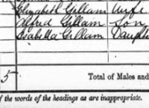 Elizabeth Gillam Wife
Alfred Gillam Son
Gillam Daugh
5
Total of Males and
of the words of the headings as are inappropriate.